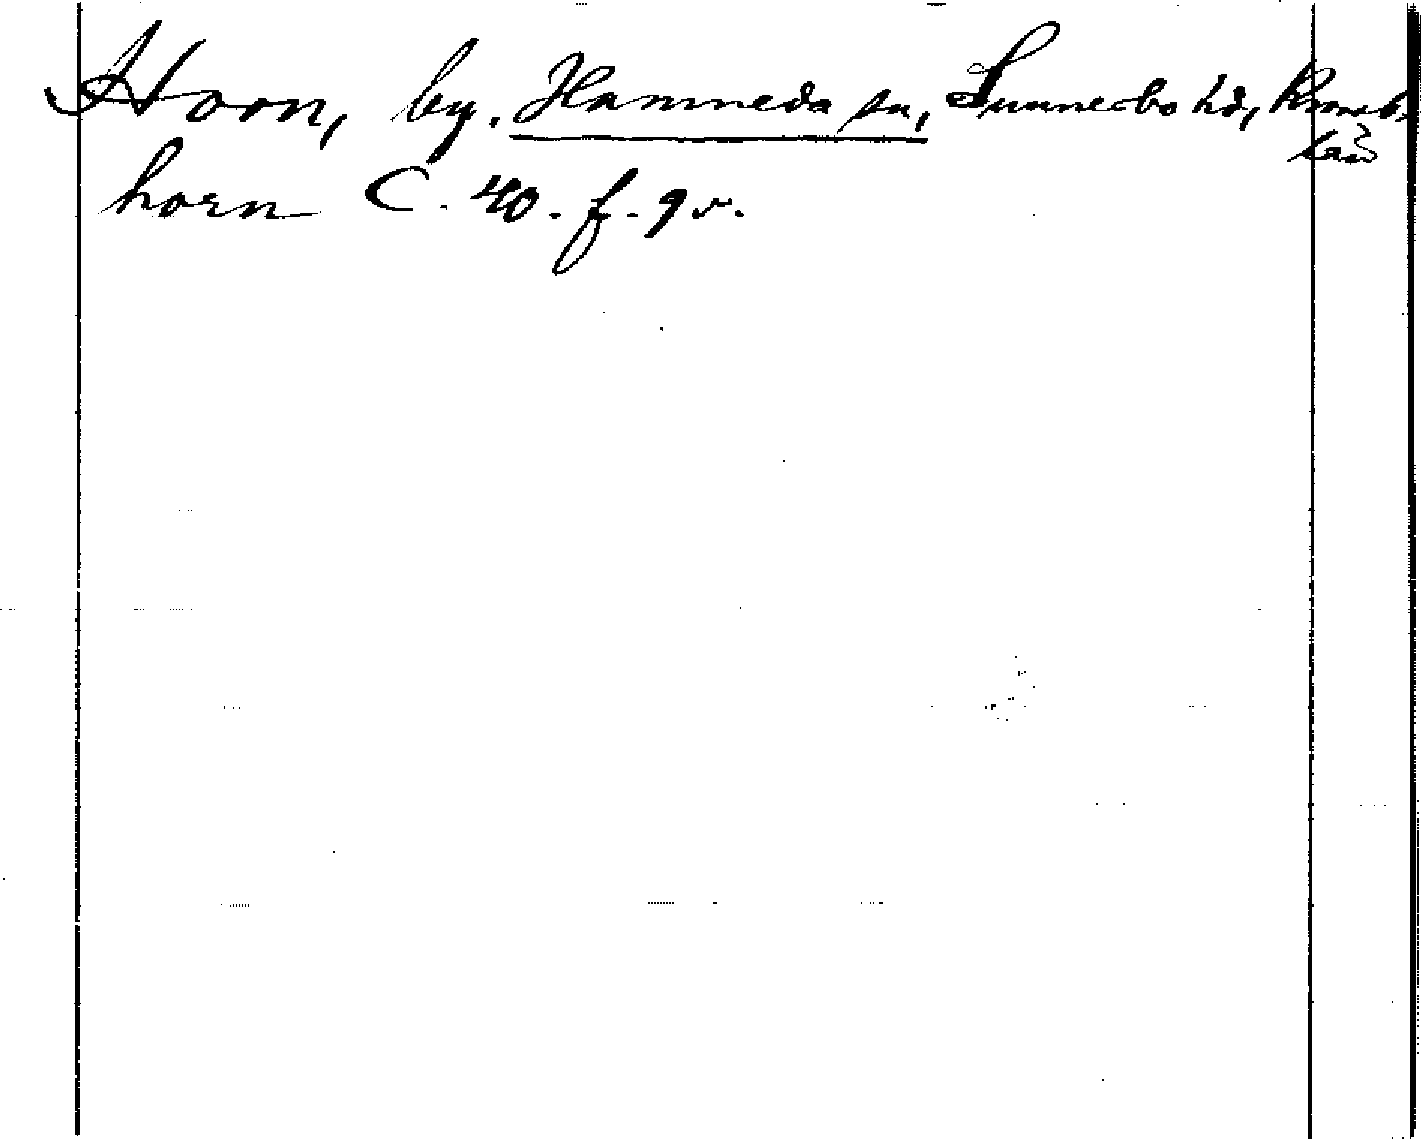 Horn, by. Hamneda sn, Sunnerbo hd, Kronob.
län
horn C. 40. f. 9 v.